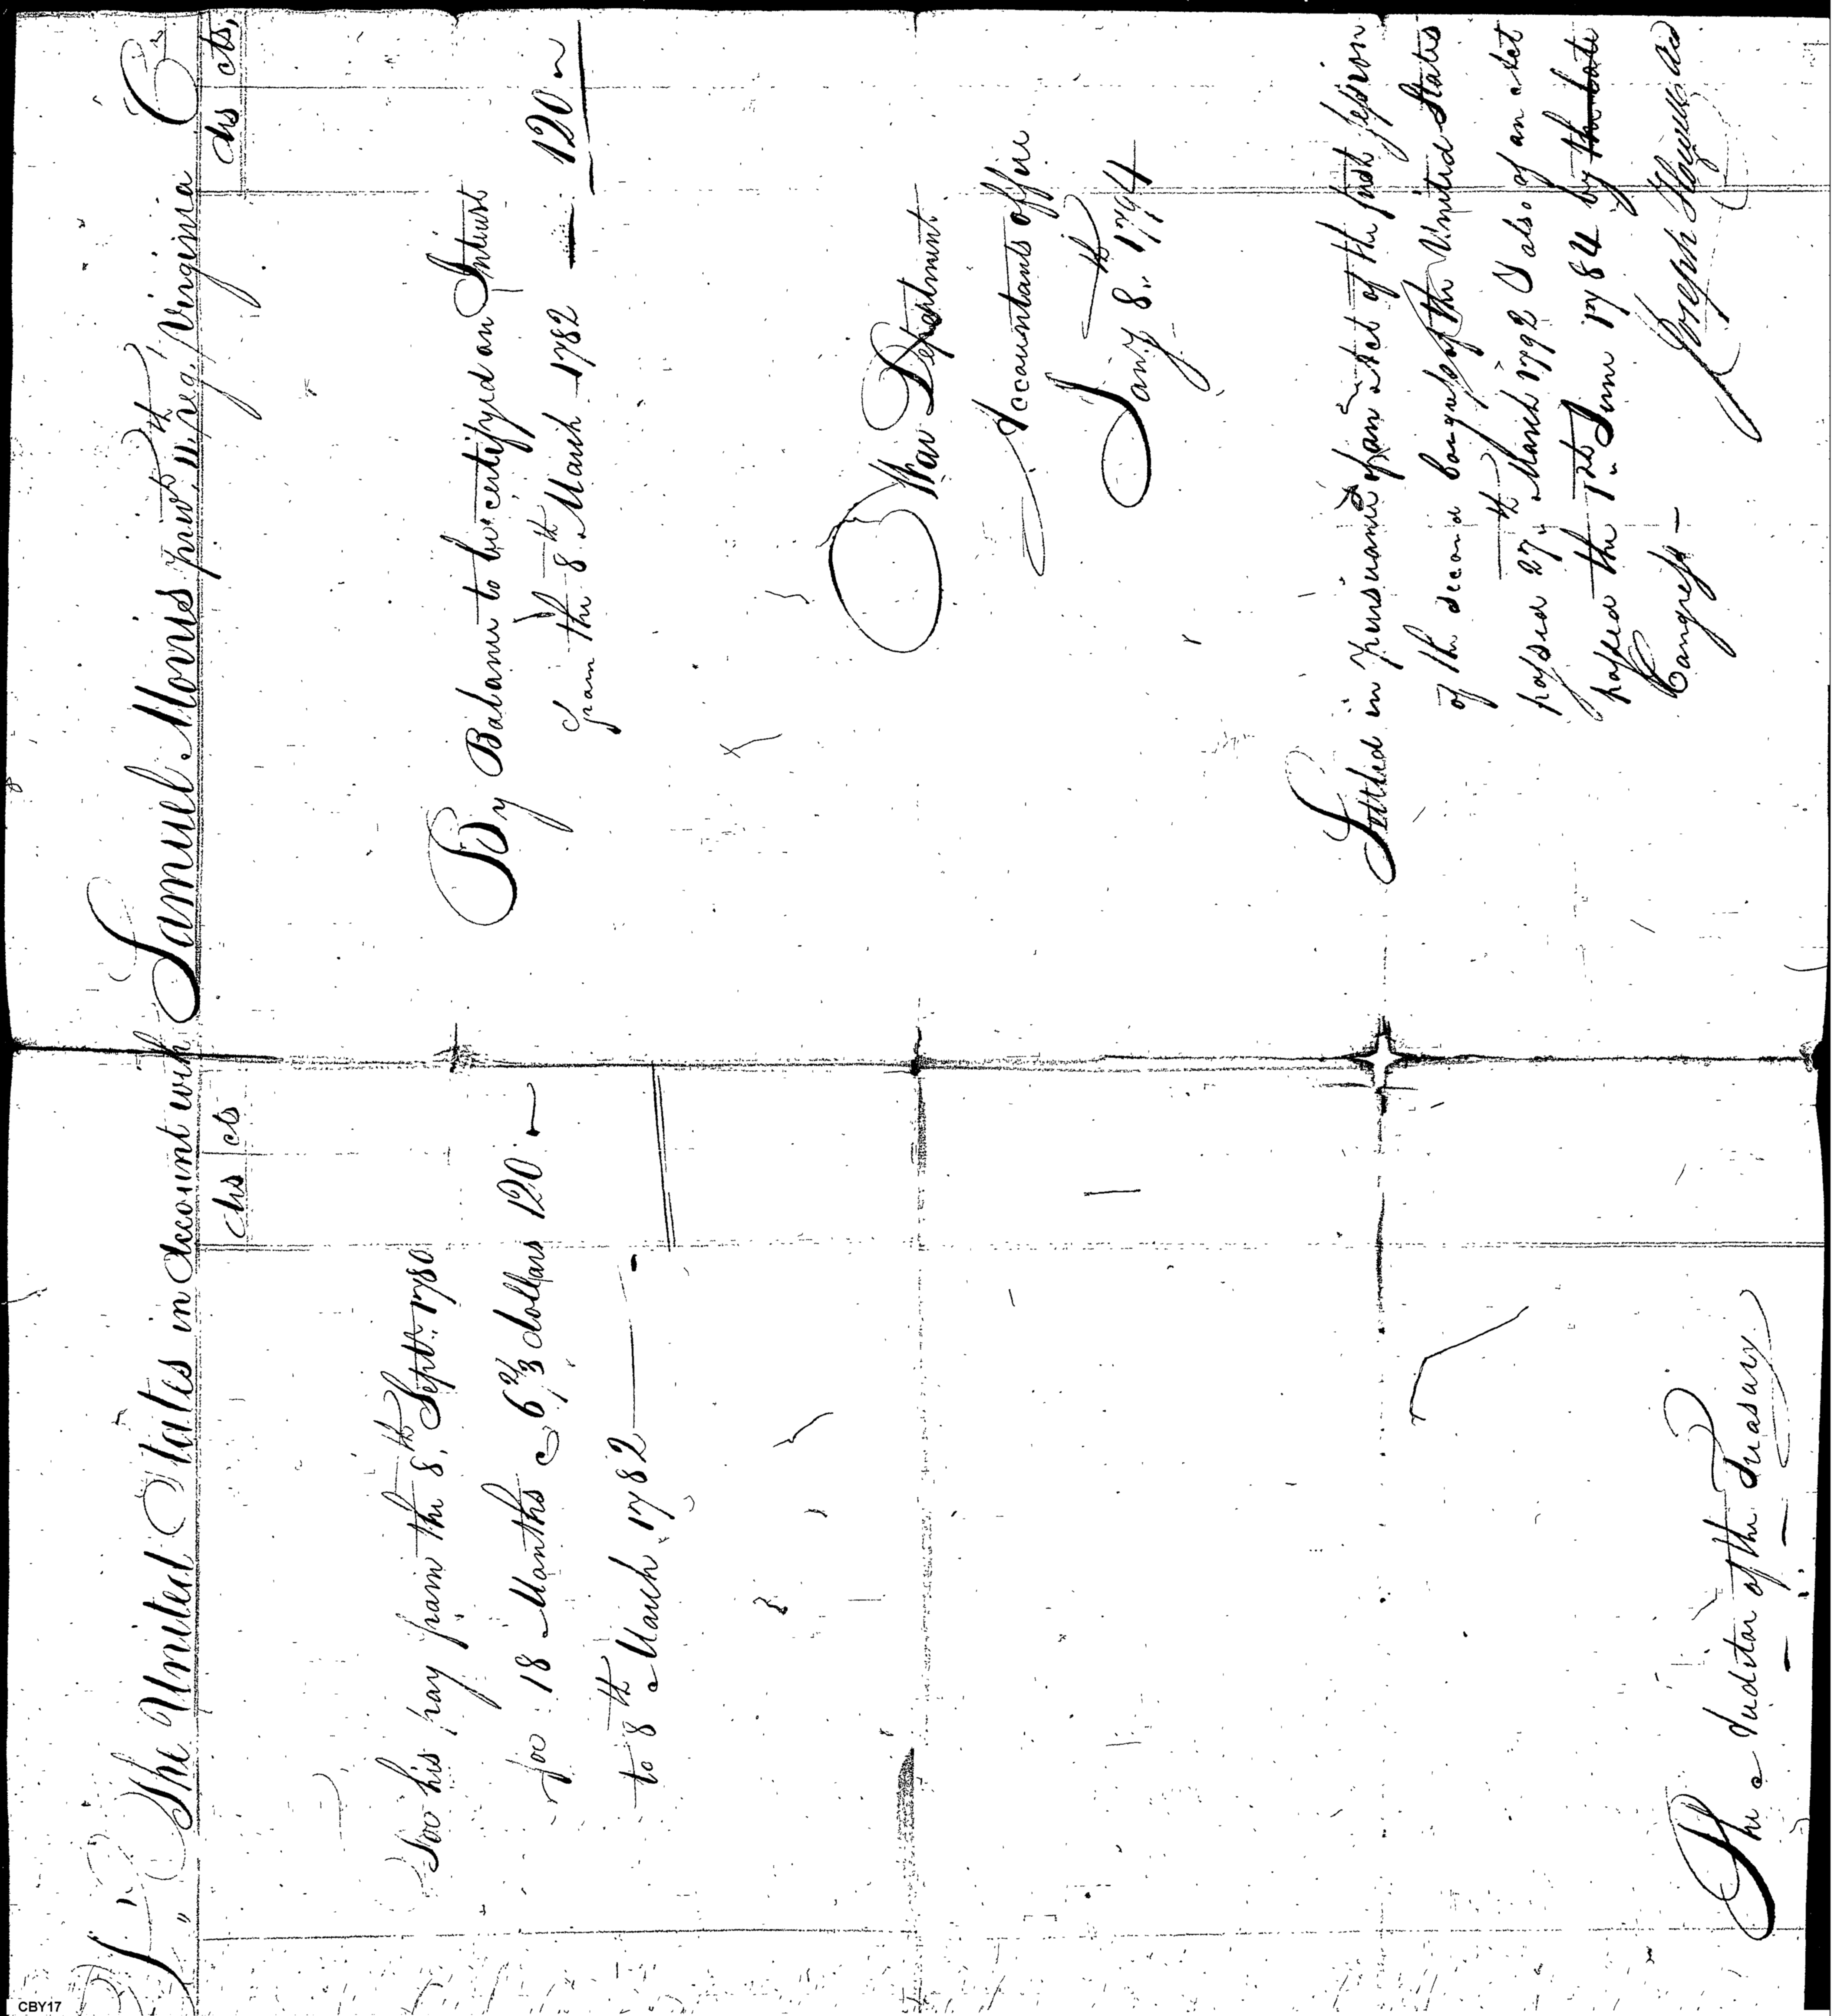 Dr. The United States in Account with Samuel Morris privt. 11th Reg. Virginia Cr
dls cts
For his pay from the 8th. Septr. 1780
for 18 Months @ 6 2/3 dollars 120. ~
to 8th March 1782
The Auditor of the Treasury.
dls cts,
By Balance to be certifyed an Interest
from the 8th March 1782 — 120 ~
War Department.
Accountants office
Jany 8th 1794
Settled in pursuance of an Act of the first session
of the second Congress of the United States
passed 27th March 1792 & also of an Act
passed the 1st June 1784 by the late
Congress —
Joseph Howell
CBY17